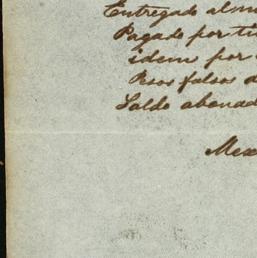 Entregado al
Pagado por
idem por
Pesos falsos
Saldo abonad
Mex